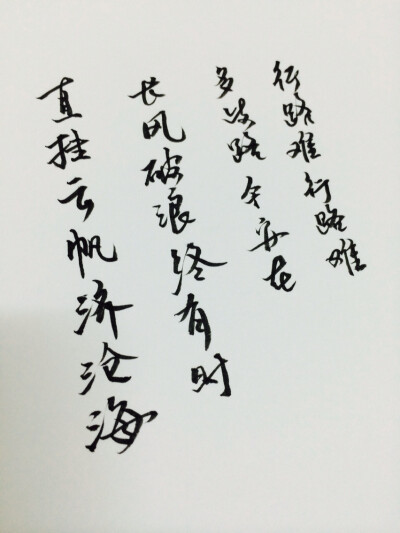 行路难行路难
多歧路今安在
长风破浪终有时
直挂云帆济沧海